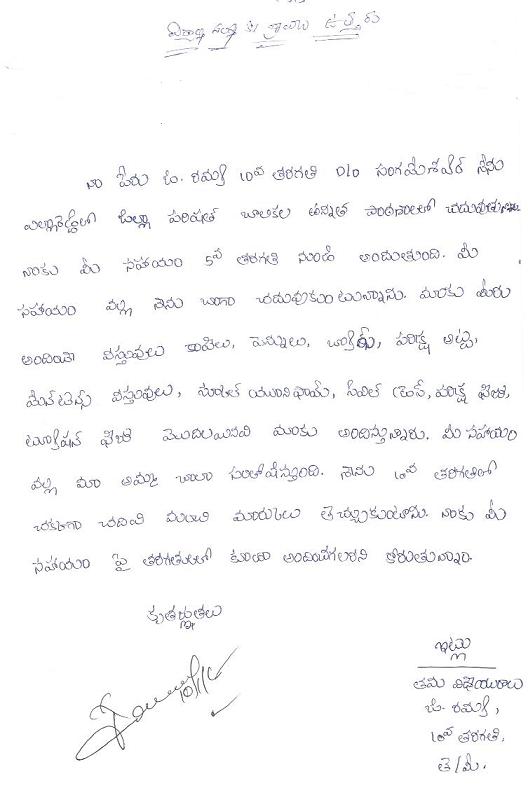 విద్యార్థి సంస్థ కు వ్రాయు ఉత్తరం
నా పేరు ఓ. రమ్య 10వ తరగతి D/o సంగమేశ్వర్ నేను
ఎల్లారెడ్డిలో జిల్లా పరిషత్ బాలికల ఉన్నత పాఠశాలలో చదువుతున్నాను.
నాకు మీ సహాయం 5వ తరగతి నుండి అందుతుంది. మీ
సహాయం వల్ల నేను బాగా చదువుకుంటున్నాను. మాకు మీరు
అందించే వస్తువులు కాపీలు, పెన్నులు, బాక్సులు, పరీక్ష అట్ట,
మేన్ టెన్స్ వస్తువులు, స్కూల్ యూనిఫామ్, సివిల్ డ్రెస్, పరీక్ష ఫీజు,
ట్యూషన్ ఫీజు మొదలయినవి మాకు అందిస్తున్నారు. మీ సహాయం
వల్ల మా అమ్మ చాలా సంతోషిస్తుంది. నేను 10వ తరగతిలో
చక్కగా చదివి మంచి మార్కులు తెచ్చుకుంటాను. నాకు మీ
సహాయం పై తరగతులలో కూడా అందించగలరని కోరుతున్నాం.
కృతజ్ఞతలు
ఇట్లు
తమ విధేయురాలు
ఓ. రమ్య,
10వ తరగతి,
తె/మీ.